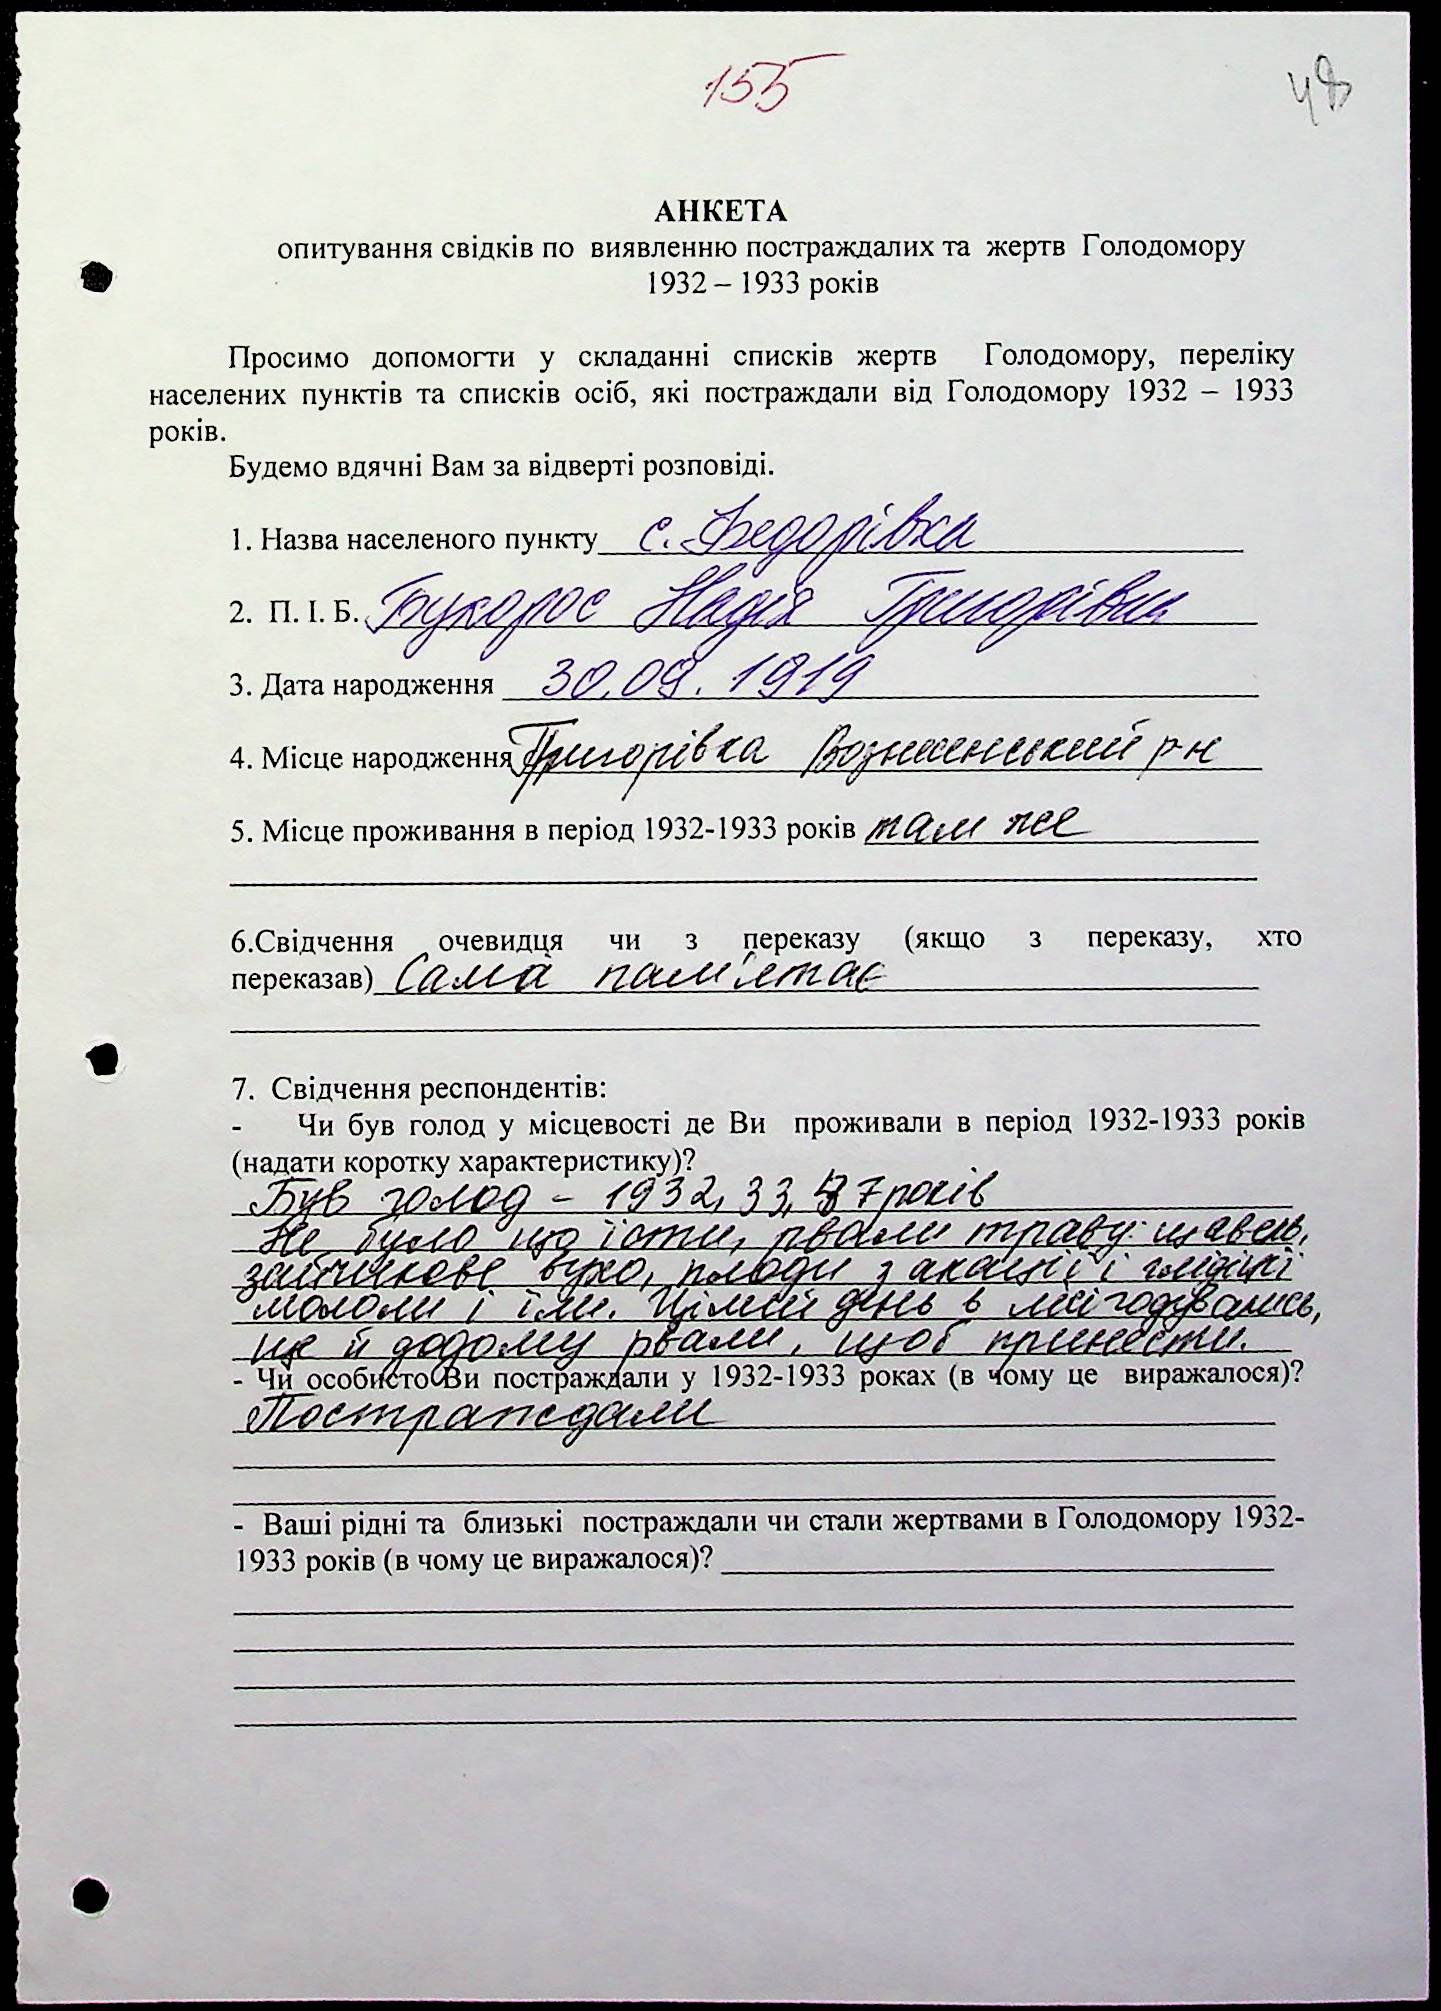 155
48
АНКЕТА
опитування свідків по виявленню постраждалих та жертв Голодомору
1932 – 1933 років
Просимо допомогти у складанні списків жертв Голодомору, переліку
населених пунктів та списків осіб, які постраждали від Голодомору 1932 – 1933
років.
Будемо вдячні Вам за відверті розповіді.
1. Назва населеного пункту с. Федорівка
2. П. І. Б. Букорос Надія Григорівна
3. Дата народження 30.09.1919
4. Місце народження Григорівка Вознесенський р-н
5. Місце проживання в період 1932-1933 років там же
6.Свідчення очевидця чи з переказу (якщо з переказу, хто
переказав) Сама пам'ятає
7. Свідчення респондентів:
- Чи був голод у місцевості де Ви проживали в період 1932-1933 років
(надати коротку характеристику)?
Був голод – 1932, 33, 47 років
Не було що їсти, рвали траву: щавель,
зайчикове вухо, плоди з акації і глідікі
мололи і їли. Цілий день в лісі годувались,
ще й додому рвали, щоб принести.
- Чи особисто Ви постраждали у 1932-1933 роках (в чому це виражалося)?
Постраждали
- Ваші рідні та близькі постраждали чи стали жертвами в Голодомору 1932-
1933 років (в чому це виражалося)?